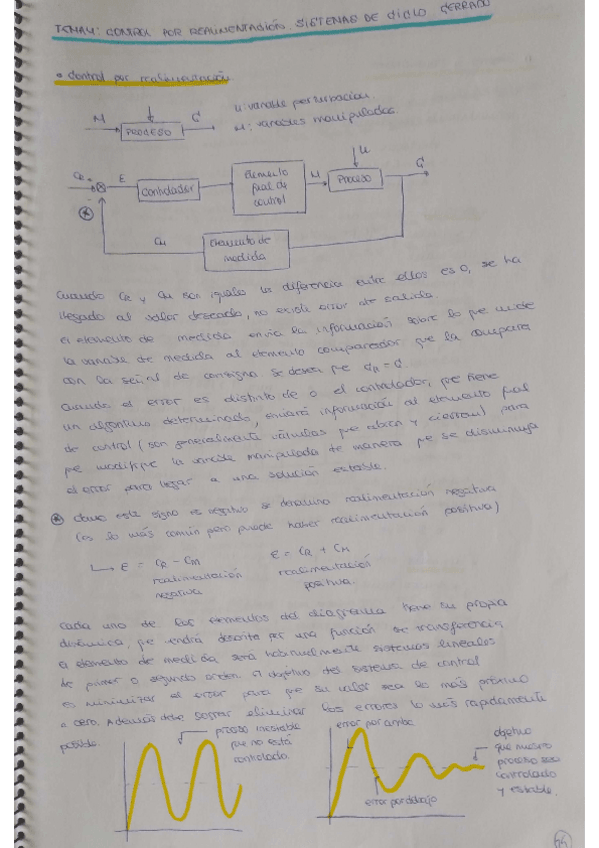 TEMA 4: CONTROL POR REALIMENTACIÓN. SISTEMAS DE CICLO CERRADO
• Control por realimentación
M
PROCESO
C
u: variable perturbación.
M: variables manipuladas.
CR
E
Controlador
Elemento final de control
M
u
Proceso
C
CM
Elemento de medida
Cuando CR y CM son iguales la diferencia entre ellos es 0, se ha
llegado al valor deseado, no existe error de salida.
El elemento de medida envía la información sobre lo que mide
la variable de medida al elemento comparador que la compara
con la señal de consigna se desea que CR = C.
Cuando el error es distinto de 0 el controlador, que tiene
un algoritmo determinado, enviará información al elemento final
de control (son generalmente válvulas que abren y cierran) para
que modifique la variable manipulada de manera que se disminuya
el error para llegar a una solución estable.
* Como este signo es negativo se denomina realimentación negativa
(es lo más común pero puede haber realimentación positiva)
E = CR - CM
realimentación negativa
E = CR + CM
realimentación positiva.
Cada uno de los elementos del diagrama tiene su propia
dinámica, que vendrá descrita por una función de transferencia
El elemento de medida será habitualmente sistemas lineales
de primer o segundo orden. El objetivo del sistema de control
es minimizar el error para que su valor sea lo más próximo
a cero. Además debe lograr eliminar los errores lo más rápidamente
posible.
proceso inestable
que no está
controlado.
error por arriba
error por debajo
objetivo
que nuestro
proceso sea
controlado
y estable.